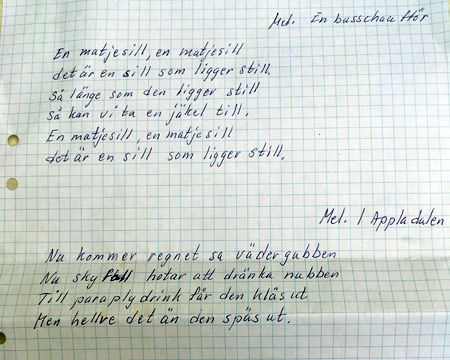 Mel. En busschaufför
En matjesill, en matjesill
det är en sill som ligger still.
Så länge som den ligger still
så kan vi ta en jäkel till.
En matjesill, en matjesill
det är en sill som ligger still.
Mel. I Appladalen
Nu kommer regnet sa vädergubben
Nu skyfall hotar att dränka nubben
Till paraplydrink får den kläs ut
Men hellre det än den späs ut.